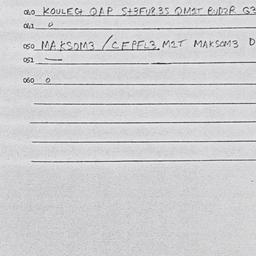 040 KOULEGt QAP St3FU835 QM2T RUD2R G3
041 0
050 MAKSOM3 / CEPFL3 M2T MAKSOM3 D
051 —
060 0